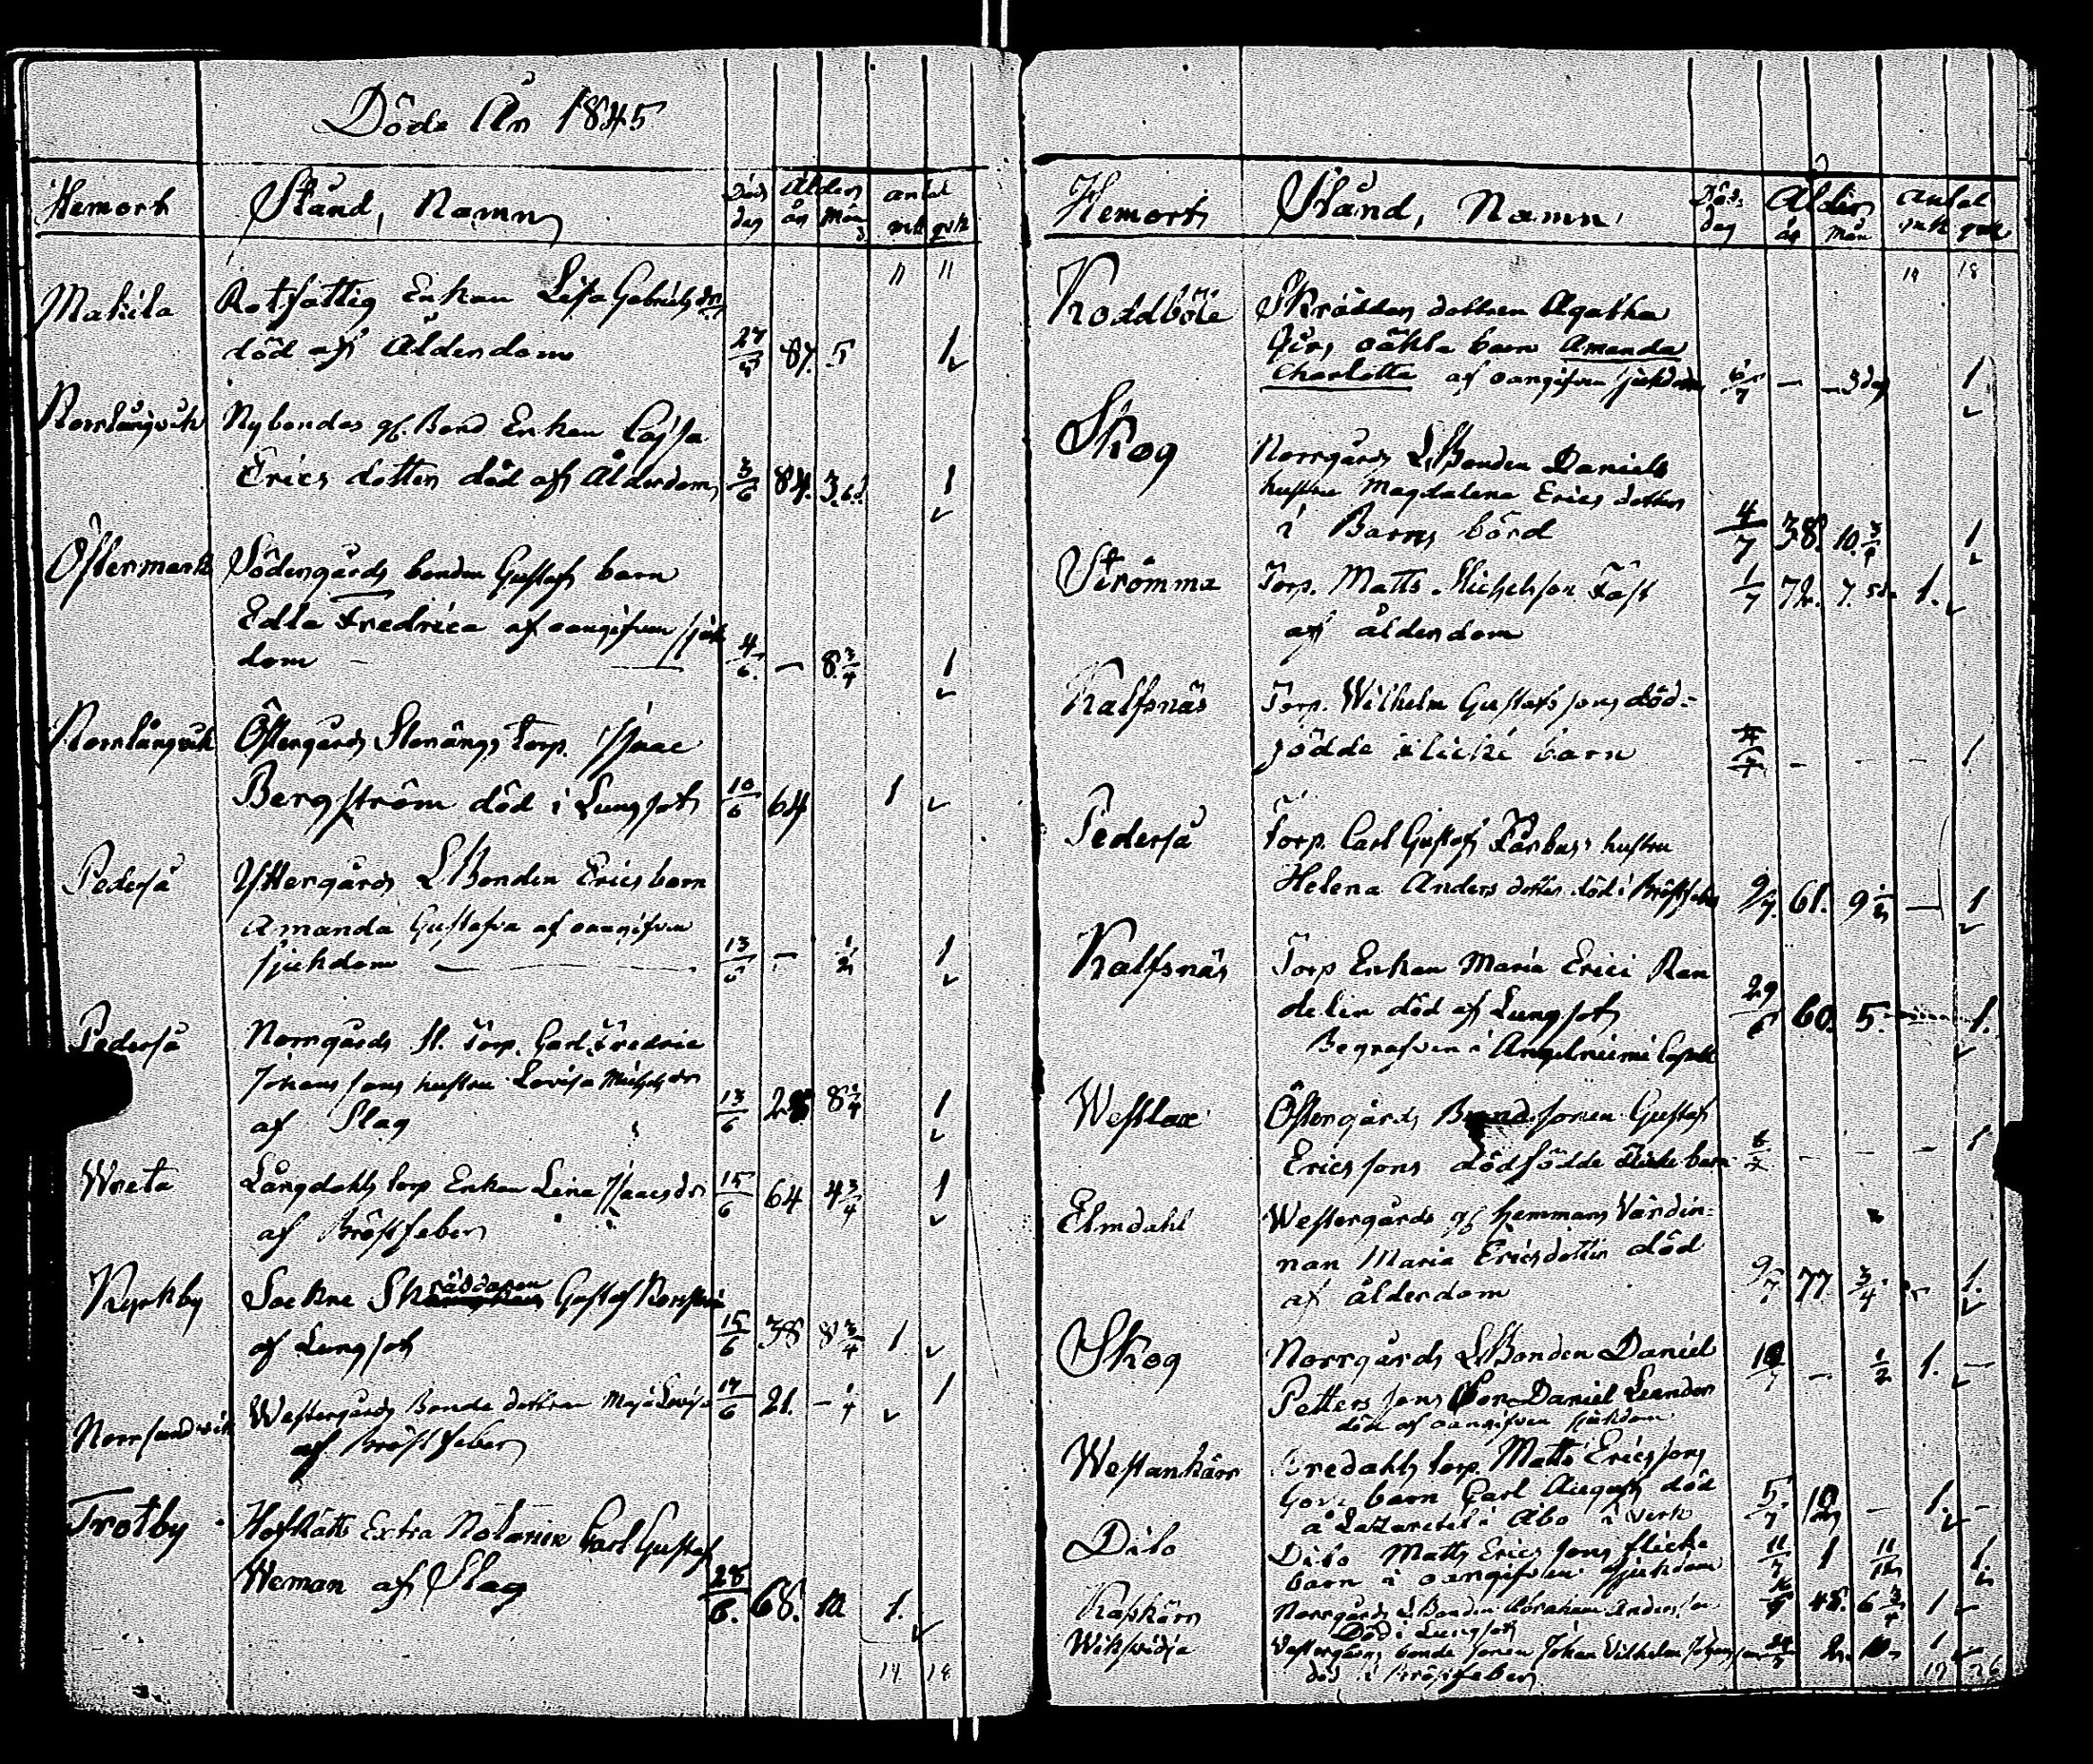 Döde År 1845
Hemort Stånd, Namn Död dag Ålder år Mån antal mk qvk
11 11
Makila Rotfattig Enkan Lisa Gabrielsdr
död af Ålderdom 27/5 87. 5 1
Norrlångvik Nybondas gf. Bond Enkan Cajsa
Erics dotter död af Ålderdom 3/6 84. 3. 1
Östermark Södergårds bonden Gustafs barn
Edla Fredrica af oangifven sjuk
dom — 4/6. — 8 3/4 1
Norrlångvik Östergårds Storängs torp. Isaac
Bergström död i Lungsot 10/6 64 1
Pederså Yttergårds LBonden Erics barn
Amanda Gustafva af oangifven
sjukdom — 13/6 — 1/2 1
Pederså Norrgårds St. Torp. Carl Fredric
Johanssons hustru Lovisa Michelsdr
af Slag 13/6 8 1/4 1
Wreta Långdahls torp Enkan Lena Isaacsdr 15/6 64 4 3/4 1
af Bröstfeber
Kyrkby Sockne Skräddaren Gustaf
af Lungsot 15/6 38 8 3/4 1.
Norrsundvik Westergårds Bonde dottren Maja Lovisa 17/6 21. — 1/4 1
af Bröstfeber
Trotby Hofrätts Extra Notarien Carl Gustaf
Heman af Slag 28/6. 68. 10 1.
14 18
Hemort Stånd, Namn Död. dag Ålder år Mån antal mk qvk
14 18
Koddböle Skräddar dottren Agatha
oäkta barn Amanda
Charlotta af oangifven sjukdom 6/7 — — 3 dag 1
Skog Norrgårds LBonden Daniels
hustru Magdalena Erics dotter
i Barns börd 4/7 38. 10. 3/4 1
Strömma Torp. Matts Michelsson Fast 1/7 72. 7. 5d. 1.
af ålderdom
Kalfsnäs Torp. Wilhelm Gustafssons död-
födde flicke barn 4/7 — — — 1.
Pederså Torp. Carl Gustaf Färbus hustru
Helena Anders dotter död i Bröstfeber 9/7. 61. 9 1/2 — 1
Kalfsnäs Torp Enkan Maria Erici Ran
delin död af Lungsot 29/6 60. 5. 1.
Begrafven i Angelniemi Capell
Westlax Östergårds Bondsonen Gustaf
Ericssons dödfödde flicke barn 6/7 — — — 1
Elmdahl Westergårds gf. Hemmans Värdin-
nan Maria Ericsdotter död
af ålderdom 9/7 77 3/4 1.
Skog Norrgårds LBonden Daniel 10/7 — 1/2 1. —
Petters sons Son Daniel Leander
död af oangifven sjukdom
Westankärr Bredahls torp. Matts Ericssons
barn Carl August död
å Lazarettet i Åbo i verk 5/7 — 1. —
Dito Dito Matts Ericssons flicke
barn i oangifven sjukdom 11/7 1 11/12 1.
Kaskärr Norrgårds LBonden Abraham Andersson 48. 6 3/4 1
Död i Lungsot
Wiksvidja Westergårds bonde sonen Johan Vilhelm Johansson 2. 10. 1
död i Bröstfeber
19 26